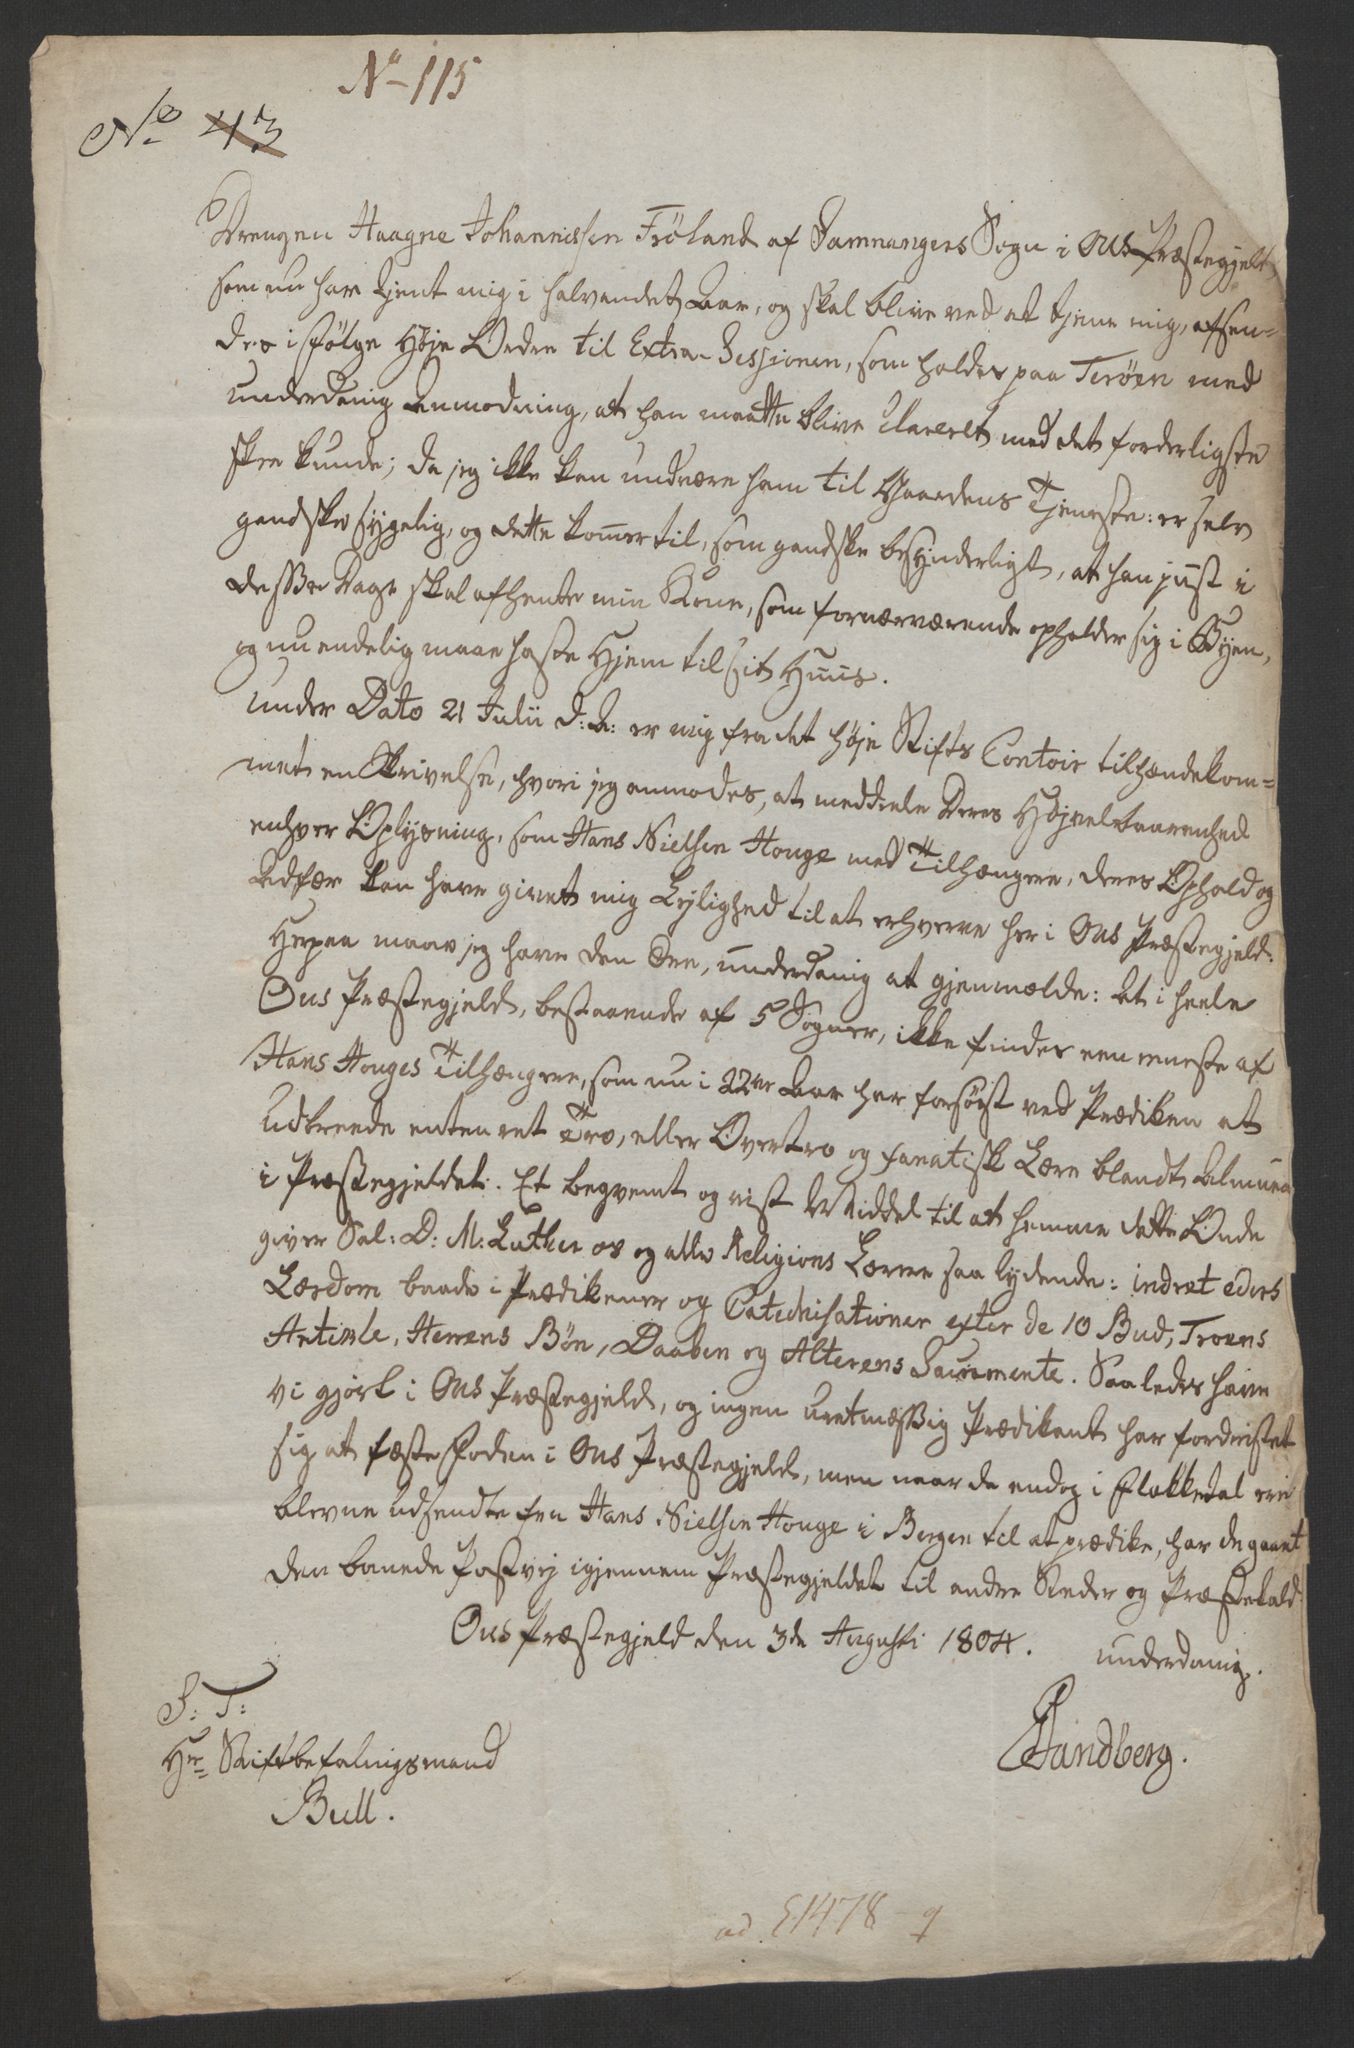 No 115
No 43
Drengen Haagne Johannissen Fröland af Samnangers Sogn i Ous Præstegjeld
som nu har tjent mig i halvandet Aar, og skal blive ved at tjene mig, afsen=
des i fölge Höje Ordre til Extra-Sessionen, som holdes paa Teröen med
underdanig Anmodning, at han maatte blive Clareret med det forderligste
skee kunde; da jeg ikke kan undvære ham til Gaardens Tjeneste: er selv
gandske sygelig, og dette kom̄er til, som gandske besynderligt, at han just i
desse Dage skal afhente min Kone, som fornærværende opholder sig i Byen,
og nu endelig maae haste Hjem til sit Huus.
Under Dato 21 Julii d: A: er mig fra det höje Stifts Contoir tilhændekom=
met en Skrivelse, hvori jeg anmodes, at meddeele Deres Höjvelbaarenhed
enhver Oplysning, som Hans Nielsen Houge med Tilhængere, deres Ophold og
Adfær kan have givet mig Lejlighed til at erhverve her i Ous Præstegjeld.
Herpaa maae jeg have den Ære, underdanig at gjenmælde: At i heele
Ous Præstegjeld, bestaaende af 5 Sogner, ikke findes een eneste af
Hans Houges Tilhængere, som nu i 22de Aar har forsögt ved Prædiken at
udbreede enten ret Tro, eller Overtro og fanatisk Lære blandt Almuen
i Præstegjeldet. Et beqvemt og vist Middel til at hemme dette Onde
giver Sal: D: M: Luther os og alle Religions Lærere saa lydende: indret eders
Lærdom baade i Prædikener og Catechisationer efter de 10 Bud, Troens
Artikle, Herrens Bön, Daaben og Alterens Sacramente. Saaledes have
vi gjort i Ous Præstegjeld, og ingen uretmæssig Prædikant har fordristet
sig at fæste Foden i Ous Præstegjeld, men naar de endog i Flokketal ere
blevne udsendte fra Hans Nielsen Houge i Bergen til at prædike, har de gaaet
den banede Postvej igjennem Præstegjeldet til andre Steder og Præstekald.
Ous Præstegjeld den 3de Augusti 1804. underdanig.
S: T:
Hr Stiftbefalingsmand
Sandberg.
Bull.
ad. E1478 - 9